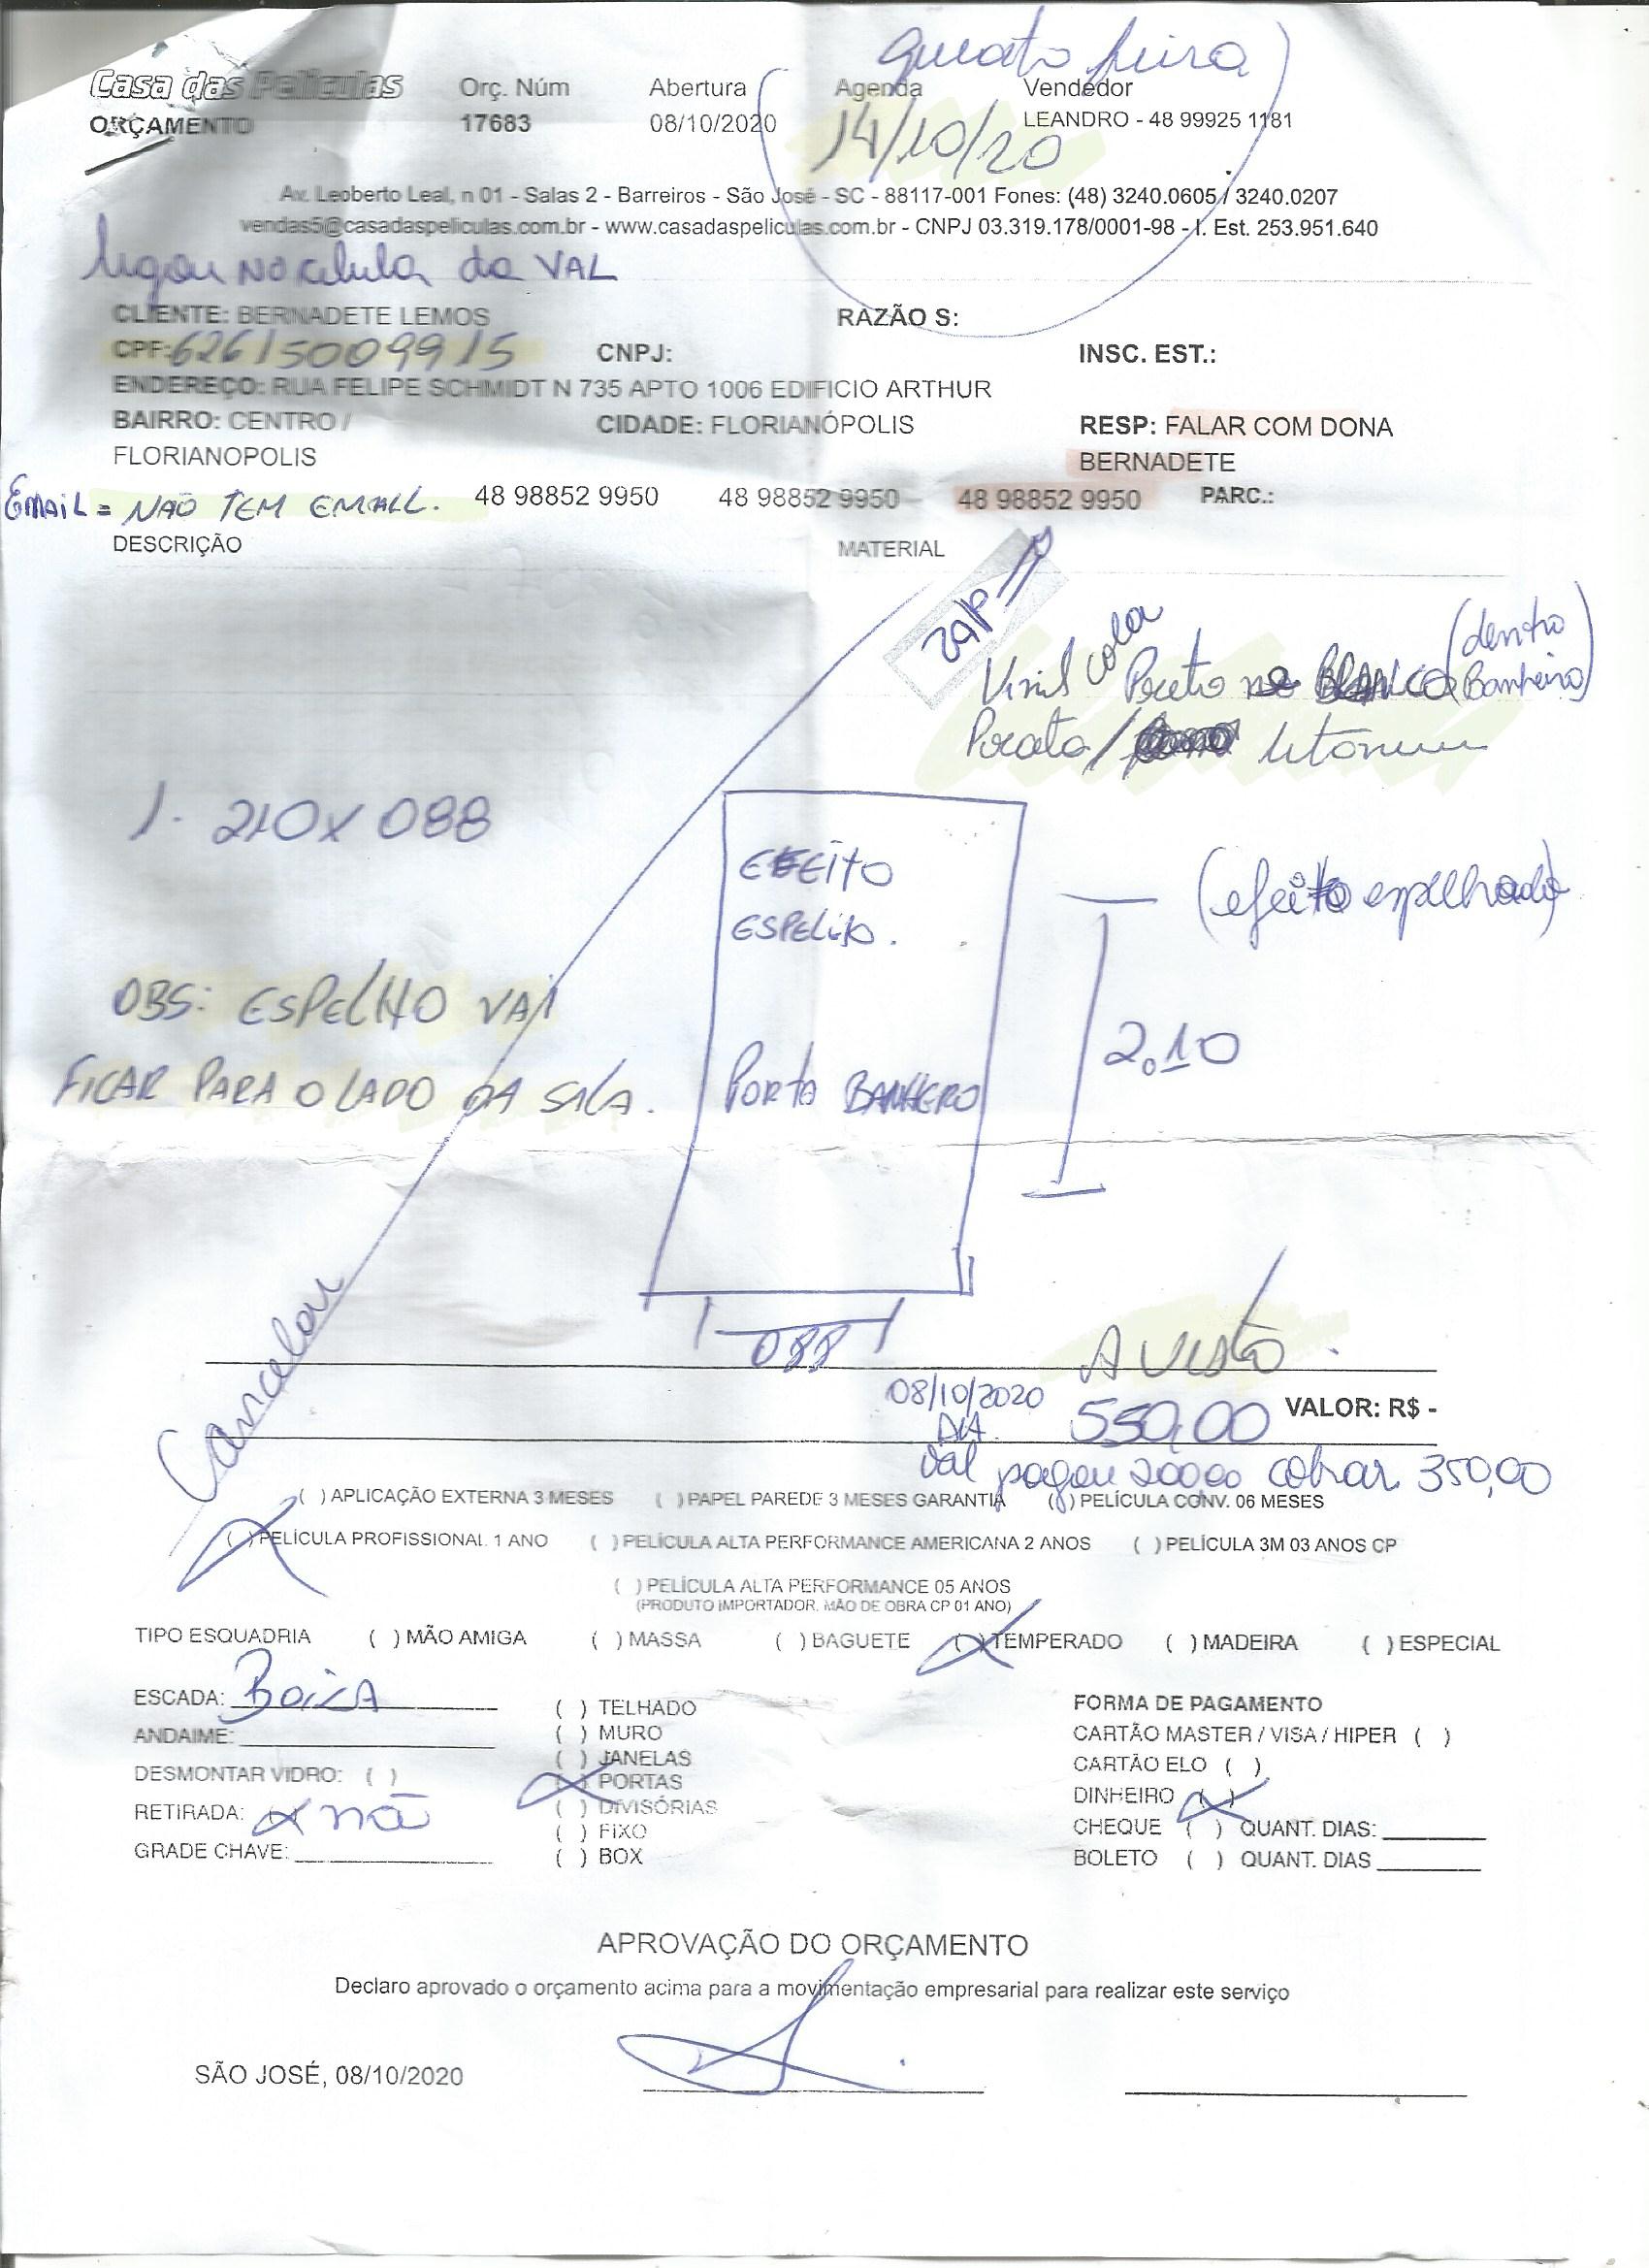 quarta feira
Casa das Películas Orç. Núm Abertura Agenda Vendedor
ORÇAMENTO 17683 08/10/2020 14/10/20 LEANDRO - 48 99925 1181
Av. Leoberto Leal, n 01 - Salas 2 - Barreiros - São José - SC - 88117-001 Fones: (48) 3240.0605 / 3240.0207
vendas5@casadaspeliculas.com.br - www.casadaspeliculas.com.br - CNPJ 03.319.178/0001-98 - I. Est. 253.951.640
ligou NO celular da VAL
CLIENTE: BERNADETE LEMOS RAZÃO S:
CPF: 62615009915 CNPJ: INSC. EST.:
ENDEREÇO: RUA FELIPE SCHMIDT N 735 APTO 1006 EDIFICIO ARTHUR
BAIRRO: CENTRO / CIDADE: FLORIANÓPOLIS RESP: FALAR COM DONA
FLORIANOPOLIS BERNADETE
EMAIL = NÃO TEM EMAIL. 48 98852 9950 48 98852 9950 48 98852 9950 PARC.:
DESCRIÇÃO MATERIAL
Vinil cola Preto no BLANCO (dentro Banheiro)
Prata /
1. 210 X 088
EFEITO
ESPELHO.
(efeito espelhado)
OBS: ESPELHO VAI
FICAR PARA O LADO DA SALA.
2.10
PORTA BANHERO
Cancelar
088
A vista
08/10/2020 550,00 VALOR: R$ -
DIA
Val pagou 200,00 cobrar 350,00
( ) APLICAÇÃO EXTERNA 3 MESES ( ) PAPEL PAREDE 3 MESES GARANTIA ( ) PELÍCULA CONV. 06 MESES
(X) PELÍCULA PROFISSIONAL 1 ANO ( ) PELÍCULA ALTA PERFORMANCE AMERICANA 2 ANOS ( ) PELÍCULA 3M 03 ANOS CP
( ) PELÍCULA ALTA PERFORMANCE 05 ANOS
(PRODUTO IMPORTADOR, MÃO DE OBRA CP 01 ANO)
TIPO ESQUADRIA ( ) MÃO AMIGA ( ) MASSA ( ) BAGUETE (X) TEMPERADO ( ) MADEIRA ( ) ESPECIAL
ESCADA: Baixa
ANDAIME:
DESMONTAR VIDRO: ( )
RETIRADA: X não
GRADE CHAVE:
( ) TELHADO
( ) MURO
( ) JANELAS
(X) PORTAS
( ) DIVISÓRIAS
( ) FIXO
( ) BOX
FORMA DE PAGAMENTO
CARTÃO MASTER / VISA / HIPER ( )
CARTÃO ELO ( )
DINHEIRO (X)
CHEQUE ( ) QUANT. DIAS:
BOLETO ( ) QUANT. DIAS
APROVAÇÃO DO ORÇAMENTO
Declaro aprovado o orçamento acima para a movimentação empresarial para realizar este serviço
SÃO JOSÉ, 08/10/2020